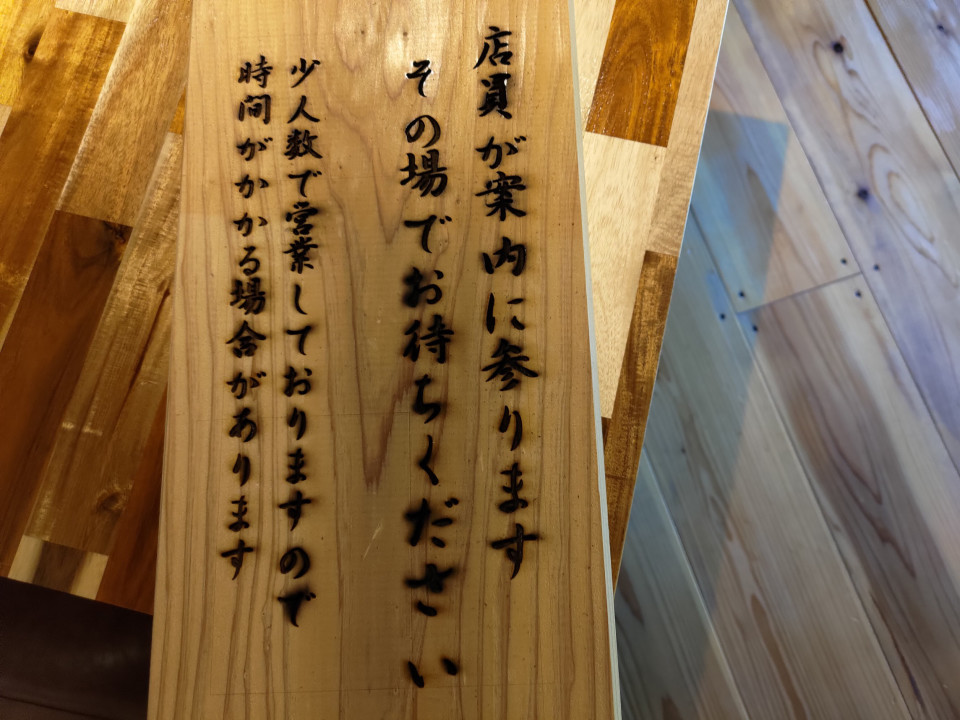 店員が案内に参ります
その場でお待ちください
少人数で営業しておりますので
時間がかかる場合があります